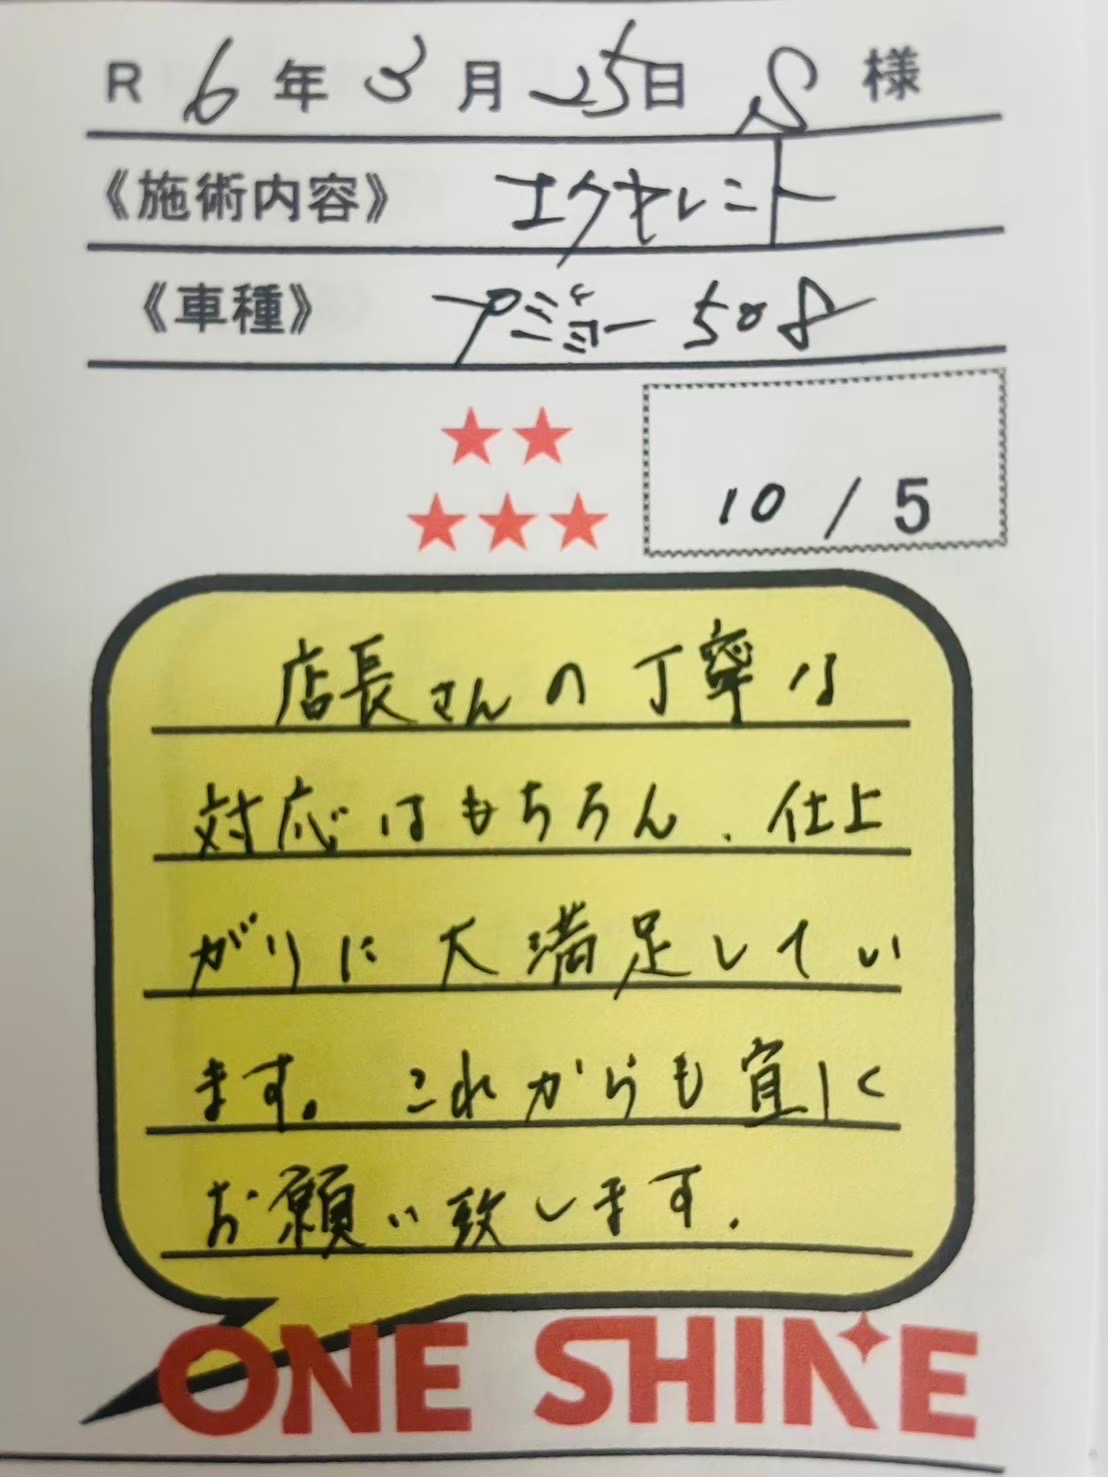 R 6 年 3 月 25 日 S 様
《施術内容》 エクセレント
《車種》 プジョー 508
10 / 5
店長さんの丁寧な
対応はもちろん、仕上
がりに大満足してい
ます。これからも宜しく
お願い致します。
ONE SHINE